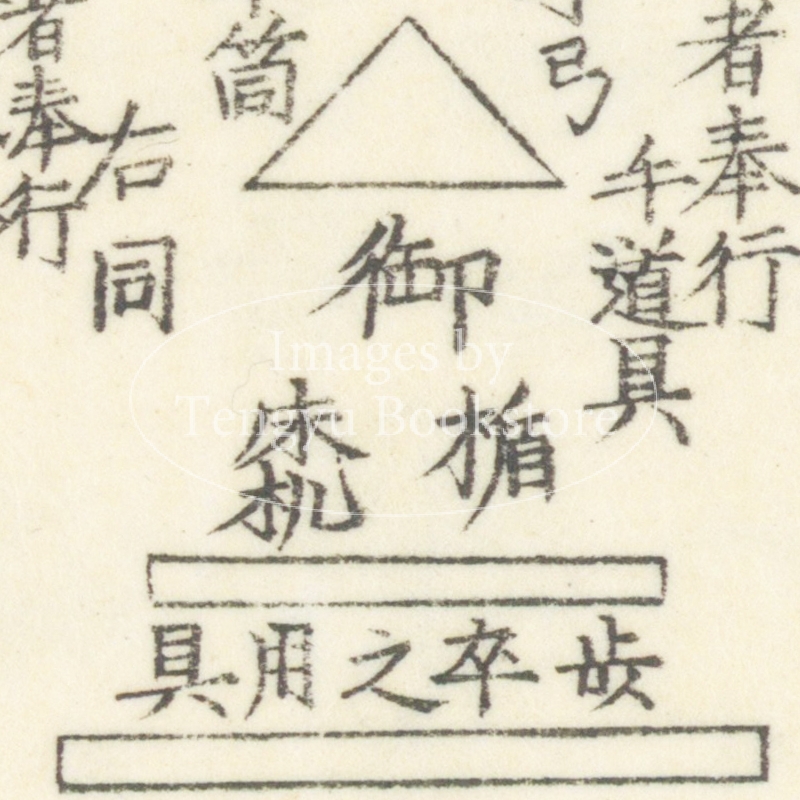 者奉行
道具
弓
御
楯
床机
筒
右同
者奉行
歩卒之用具
Images by
Tengyu Bookstore